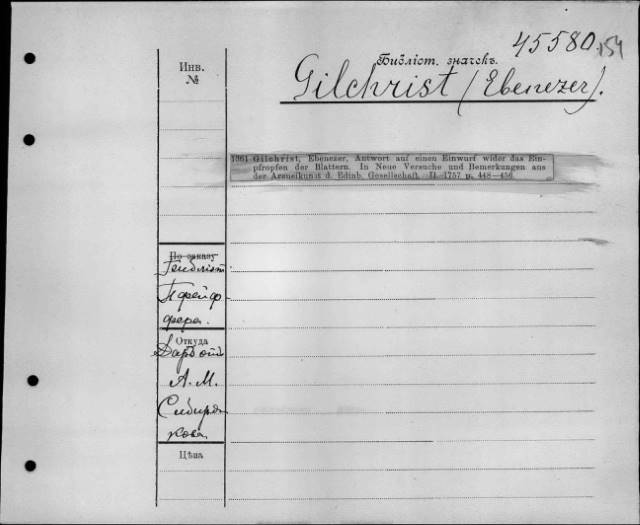 45580.154
Библіот. значекъ.
Gilchrist (Ebenezer).
Инв.
№
1361 Gilchrist, Ebenezer, Antwort auf einen Einwurf wider das Ein-
pfropfen der Blattern. In Neue Versuche und Bemerkungen aus
der Arzneikunst d. Edinb. Gesellschaft. II. 1757 p. 448—456
По заказу
Пфейф-
фера.
Откуда
Даръ отъ
А. М.
Сибиря-
кова
Цѣна